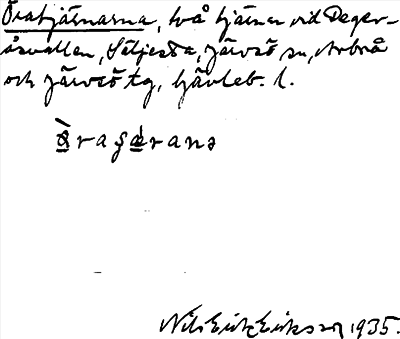 Öratjärnarna, två tjärnar vid Deger-
åsvallen, Säljesta, Järvsö sn, Arbrå
och Järvsö tg, Gävleb. l.
Nils Erik Eriksson 1935.